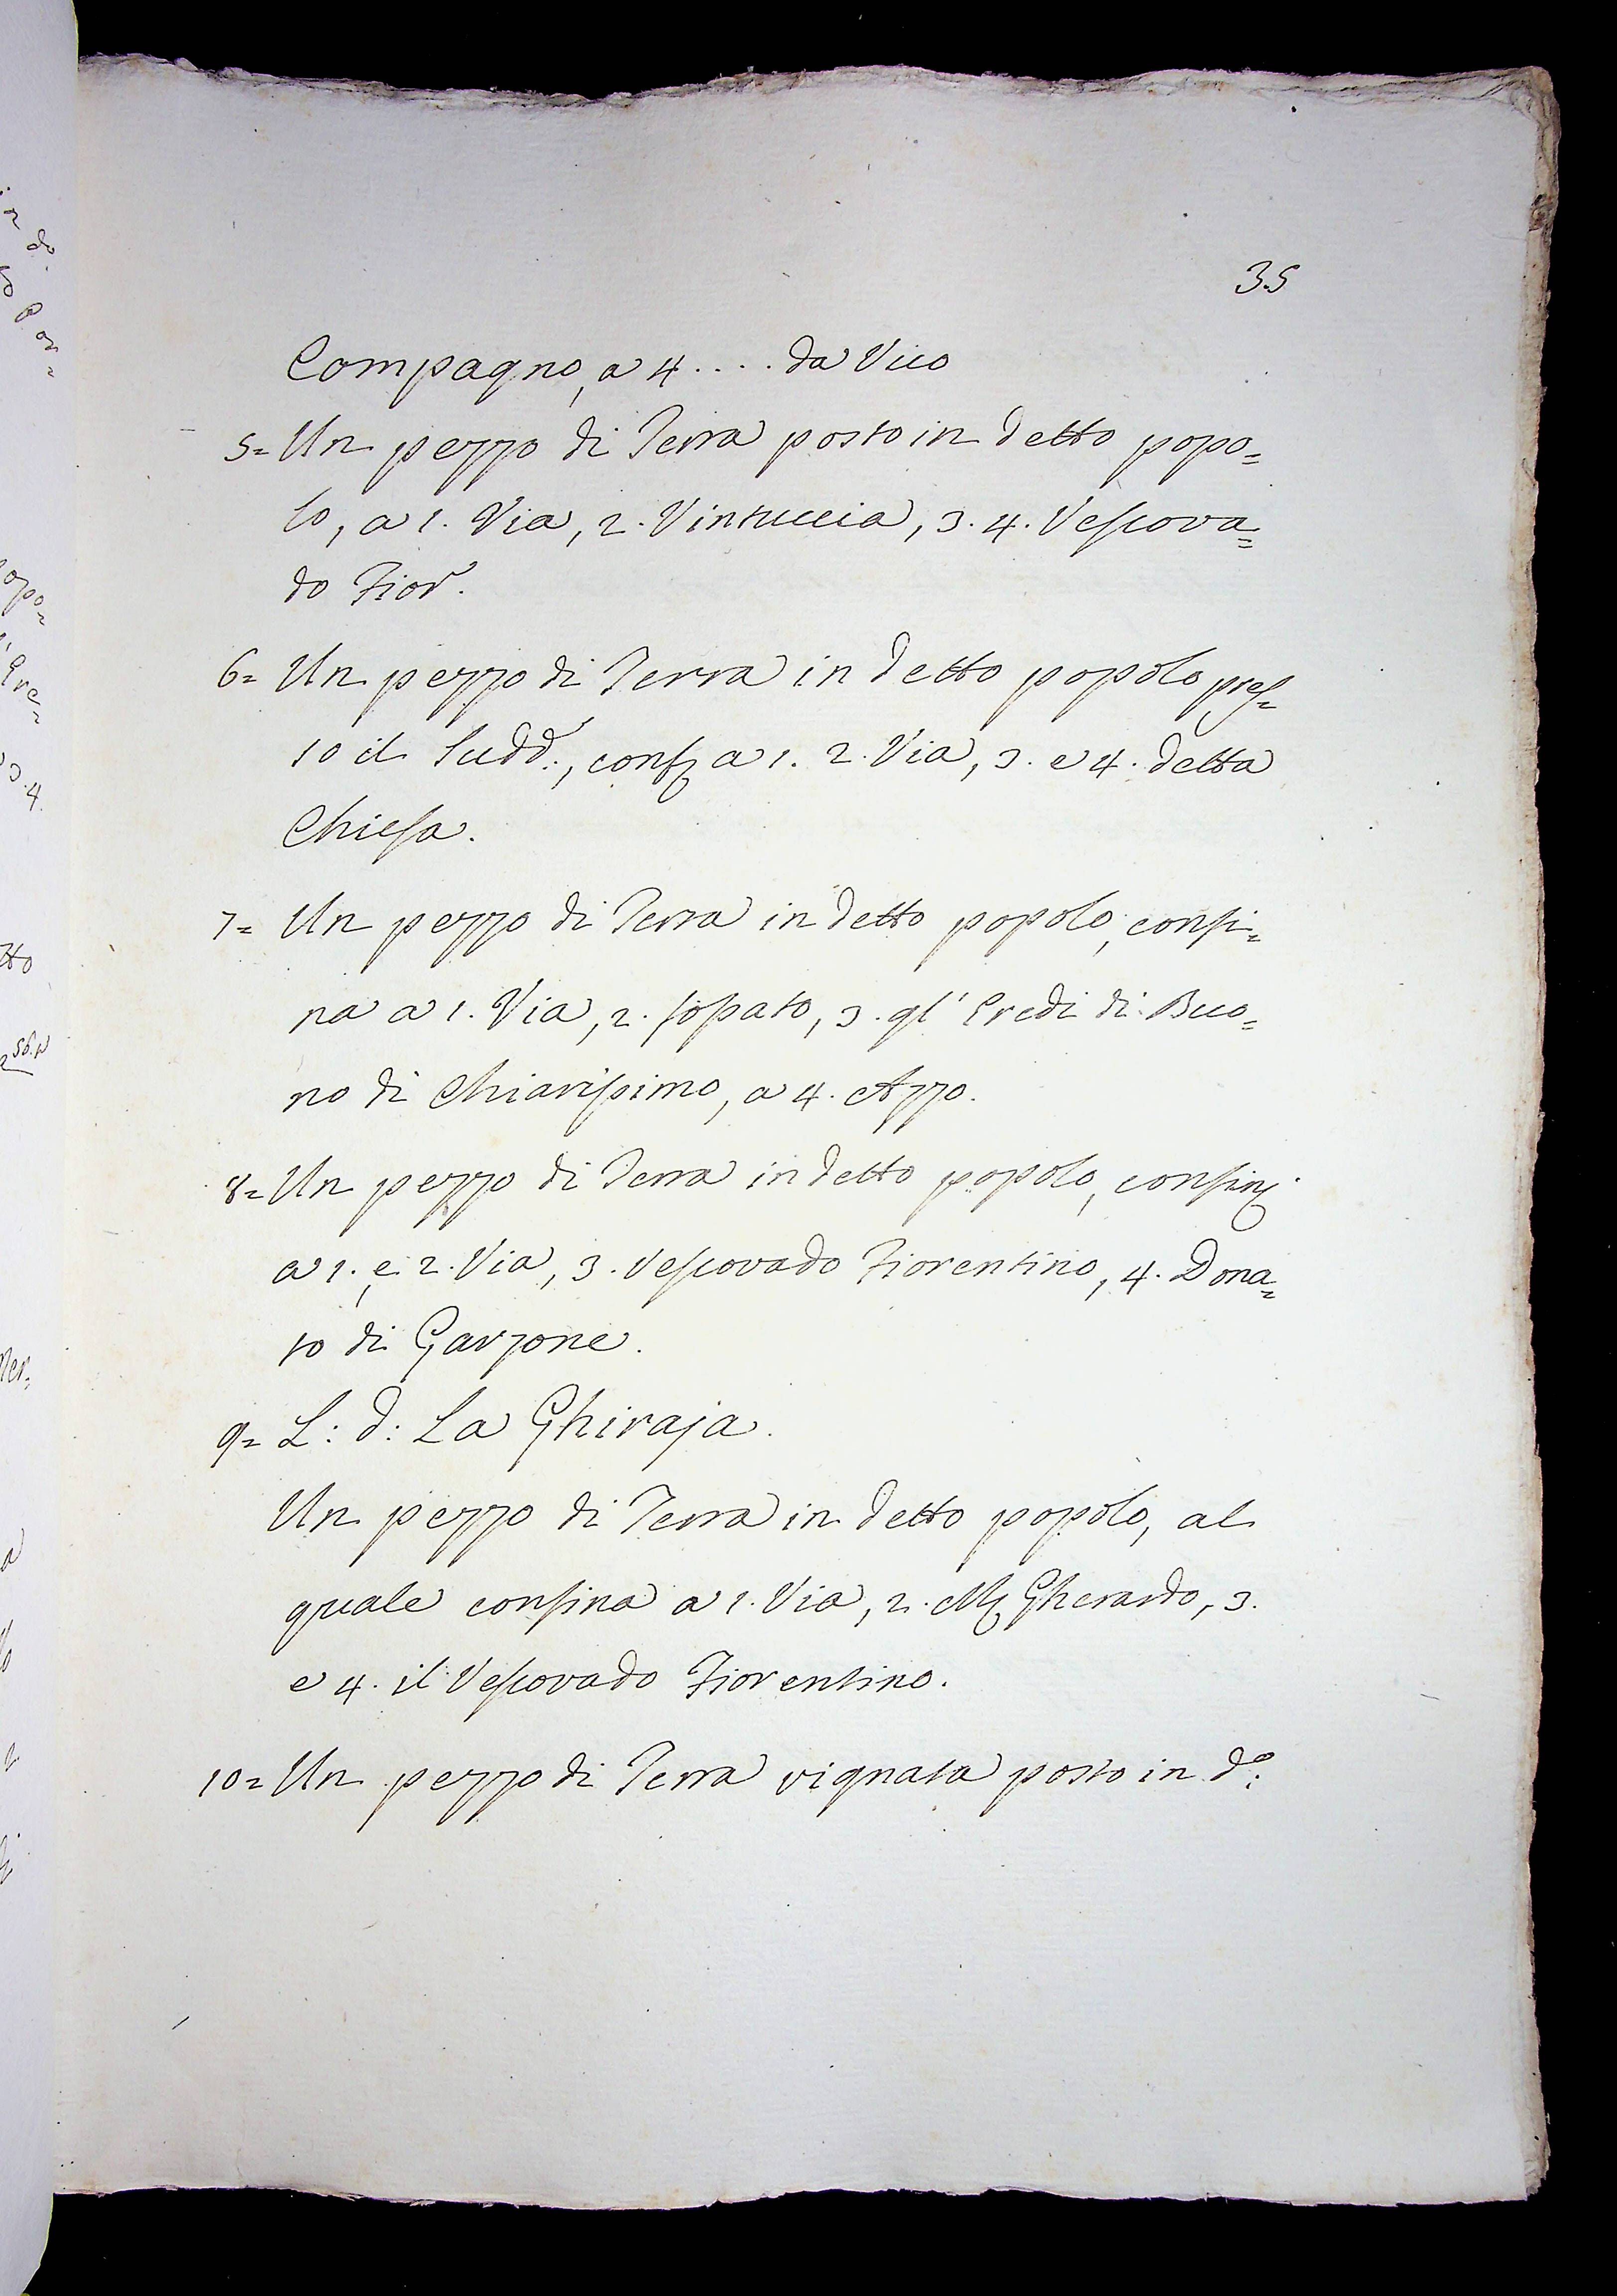 35
Compagno, a 4 .... da Vico
5= Un pezzo di Terra posto in detto popo=
lo, a 1. Via, 2. Vintuccia, 3. 4. Vescova=
do Fior.
6= Un pezzo di Terra in detto popolo pres=
so il Sudd:, conf a 1. 2. Via, 3. e 4. detta
Chiesa.
7= Un pezzo di Terra in detto popolo, confi=
na a 1. Via, 2. fossato, 3. gl' Eredi di Buo=
no di Chiarissimo, a 4. Azzo.
8= Un pezzo di Terra in detto popolo, confin
a 1. e 2. Via, 3. Vescovado Fiorentino, 4. Dona=
to di Garzone.
9= L: d: La Ghiraja.
Un pezzo di Terra in detto popolo, al
quale confina a 1. Via, 2. M Gherardo, 3.
e 4. il Vescovado Fiorentino.
10= Un pezzo di Terra vignata posto in d.º: